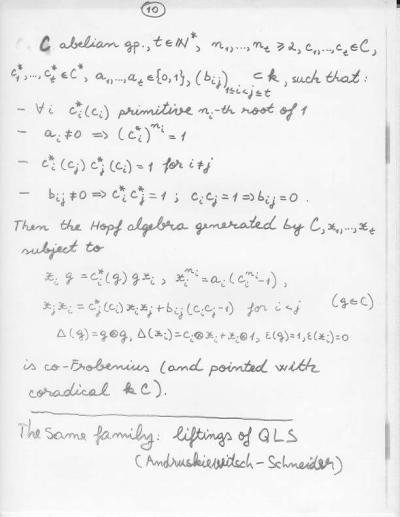 10
C abelian gp., t∈ℕ*, n₁,...,n_t ⩾ 2, c₁,...,c_t∈C,
c₁*,...,c_t*∈C*, a₁,...,a_t∈{0,1}, (b_ij)_{1≤i<j≤t} ⊂ k, such that:
– ∀i c_i*(c_i) primitive n_i-th root of 1
– a_i≠0 ⇒ (c_i*)^{n_i}=1
– c_i*(c_j) c_j*(c_i)=1 for i≠j
– b_ij≠0 ⇒ c_i* c_j*=1 ; c_i c_j=1 ⇒ b_ij=0 .
Then the Hopf algebra generated by C, x₁,...,x_t
subject to
x_i g = c_i*(g) g x_i , x_i^{n_i} = a_i (c_i^{n_i}-1) ,
x_j x_i = c_j*(c_i) x_i x_j + b_ij (c_i c_j-1) for i<j (g∈C)
Δ(g)=g⊗g, Δ(x_i)=c_i⊗x_i+x_i⊗1, ε(g)=1, ε(x_i)=0
is co-Frobenius (and pointed with
coradical kC).
The same family: liftings of QLS
(Andruskiewitsch – Schneider)